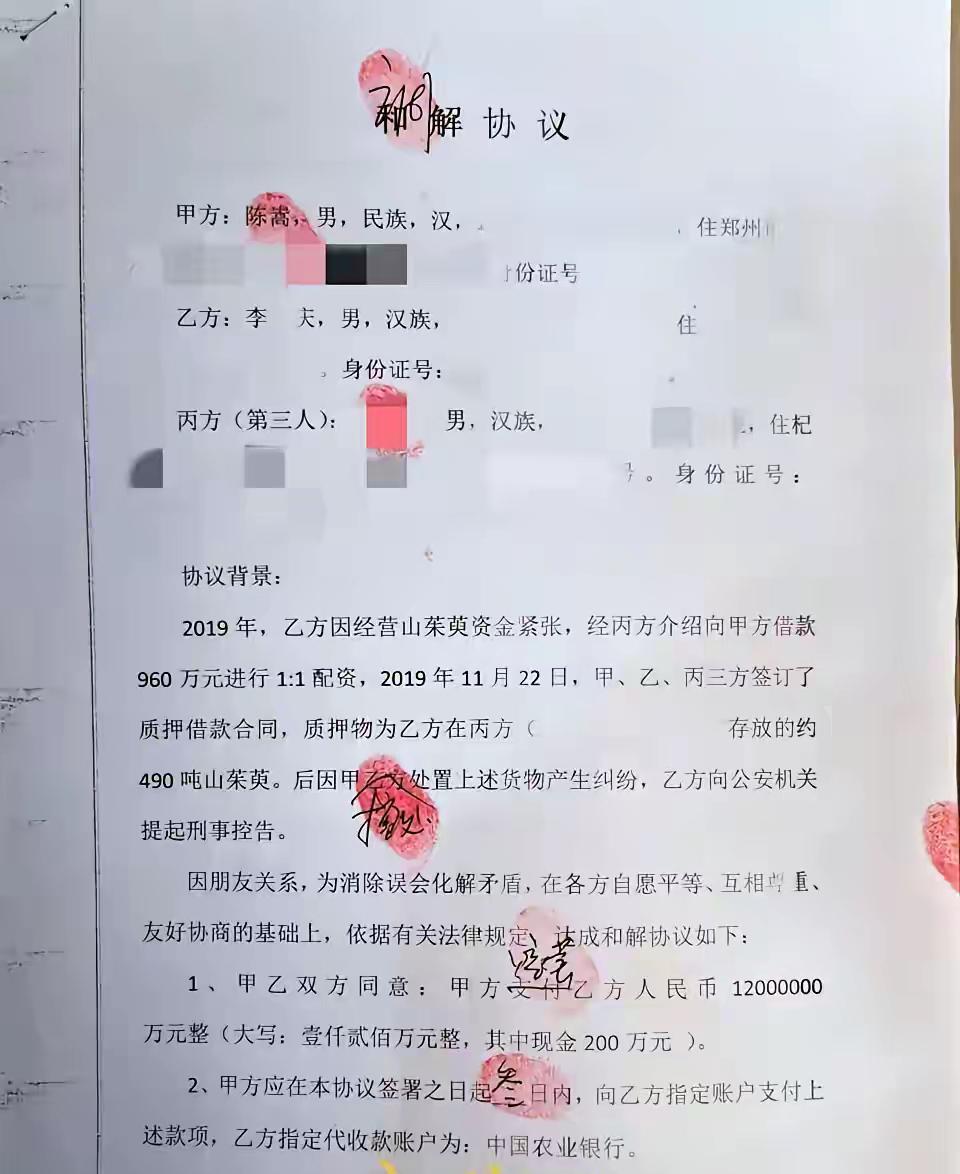 解协议
甲方：陈嵩，男，民族，汉，住郑州
份证号
乙方：李 庆，男，汉族，住
。身份证号：
丙方（第三人）：男，汉族，，住杞
号。身份证号：
协议背景：
2019年，乙方因经营山茱萸资金紧张，经丙方介绍向甲方借款
960万元进行1:1配资，2019年11月22日，甲、乙、丙三方签订了
质押借款合同，质押物为乙方在丙方（ 存放的约
490吨山茱萸。后因甲乙方处置上述货物产生纠纷，乙方向公安机关
提起刑事控告。
因朋友关系，为消除误会化解矛盾，在各方自愿平等、互相尊重、
友好协商的基础上，依据有关法律规定，达成和解协议如下：
1、甲乙双方同意：甲方支付乙方人民币12000000
万元整（大写：壹仟贰佰万元整，其中现金200万元 ）。
2、甲方应在本协议签署之日起叁日内，向乙方指定账户支付上
述款项，乙方指定代收款账户为：中国农业银行。